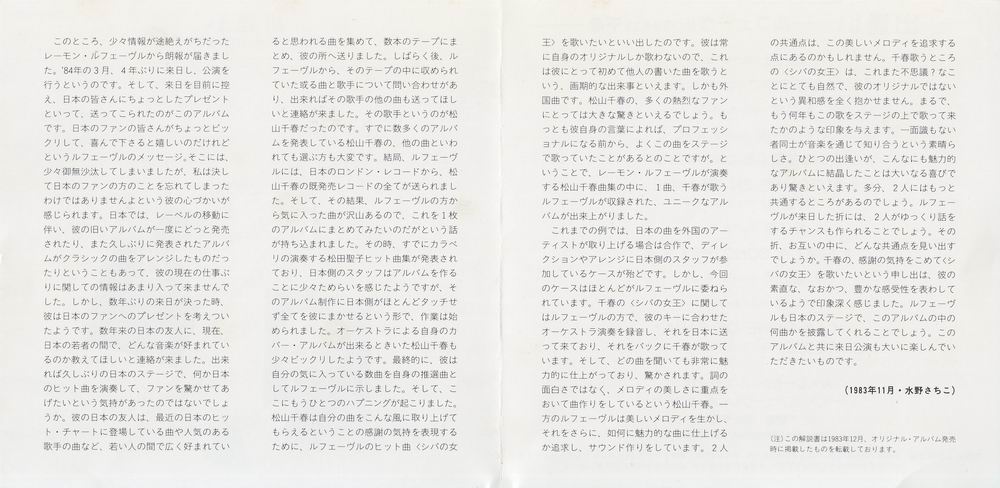 このところ、少々情報が途絶えがちだった
レーモン・ルフェーヴルから朗報が届きまし
た。'84年の3月、4年ぶりに来日し、公演を
行うというのです。そして、来日を目前に控
え、日本の皆さんにちょっとしたプレゼント
といって、送ってこられたのがこのアルバム
です。日本のファンの皆さんがちょっとビッ
クリして、喜んで下さると嬉しいのだけれど
というルフェーヴルのメッセージ。そこには、
少々御無沙汰してしまいましたが、私は決し
て日本のファンの方のことを忘れてしまった
わけではありませんよという彼の心づかいが
感じられます。日本では、レーベルの移動に
伴い、彼の旧いアルバムが一度にどっと発売
されたり、また久しぶりに発表されたアルバ
ムがクラシックの曲をアレンジしたものだっ
たりということもあって、彼の現在の仕事ぶ
りに関しての情報はあまり入って来ませんで
した。しかし、数年ぶりの来日が決った時、
彼は日本のファンへのプレゼントを考えつい
たようです。数年来の日本の友人に、現在、
日本の若者の間で、どんな音楽が好まれてい
るのか教えてほしいと連絡が来ました。出来
れば久しぶりの日本のステージで、何か日本
のヒット曲を演奏して、ファンを驚かせてあ
げたいという気持があったのではないでしょ
うか。彼の日本の友人は、最近の日本のヒッ
ト・チャートに登場している曲や人気のある
歌手の曲など、若い人の間で広く好まれてい
ると思われる曲を集めて、数本のテープにま
とめ、彼の所へ送りました。しばらく後、ル
フェーヴルから、そのテープの中に収められ
ていた或る曲と歌手について問い合わせがあ
り、出来ればその歌手の他の曲も送ってほし
いと連絡が来ました。その歌手というのが松
山千春だったのです。すでに数多くのアルバ
ムを発表している松山千春の、他の曲といわ
れても選ぶ方も大変です。結局、ルフェーヴ
ルには、日本のロンドン・レコードから、松
山千春の既発売レコードの全てが送られまし
た。そして、その結果、ルフェーヴルの方か
ら気に入った曲が沢山あるので、これを1枚
のアルバムにまとめてみたいのだがという話
が持ち込まれました。その時、すでにカラベ
リの演奏する松田聖子ヒット曲集が発表され
ており、日本側のスタッフはアルバムを作る
ことに少々ためらいを感じたようですが、そ
のアルバム制作に日本側がほとんどタッチせ
ず全てを彼にまかせるという形で、作業は始
められました。オーケストラによる自身のカ
バー・アルバムが出来るときいた松山千春も
少々ビックリしたようです。最終的に、彼は
自分の気に入っている数曲を自身の推選曲と
してルフェーヴルに示しました。そして、こ
こにもうひとつのハプニングが起こりました。
松山千春は自分の曲をこんな風に取り上げて
もらえるということの感謝の気持を表現する
ために、ルフェーヴルのヒット曲〈シバの女
王〉を歌いたいといい出したのです。彼は常
に自身のオリジナルしか歌わないので、これ
は彼にとって初めて他人の書いた曲を歌うと
いう、画期的な出来事といえます。しかも外
国曲です。松山千春の、多くの熱烈なファン
にとっては大きな驚きといえるでしょう。も
っとも彼自身の言葉によれば、プロフェッシ
ョナルになる前から、よくこの曲をステージ
で歌っていたことがあるとのことですが。と
いうことで、レーモン・ルフェーヴルが演奏
する松山千春曲集の中に、1曲、千春が歌う
ルフェーヴルが収録された、ユニークなアル
バムが出来上がりました。
これまでの例では、日本の曲を外国のアー
ティストが取り上げる場合は合作で、ディレ
クションやアレンジに日本側のスタッフが参
加しているケースが殆どです。しかし、今回
のケースはほとんどがルフェーヴルに委ねら
れています。千春の〈シバの女王〉に関して
はルフェーヴルの方で、彼のキーに合わせた
オーケストラ演奏を録音し、それを日本に送
って来ており、それをバックに千春が歌って
います。そして、どの曲を聞いても非常に魅
力的に仕上がっており、驚かされます。詞の
面白さではなく、メロディの美しさに重点を
おいて曲作りをしているという松山千春。一
方のルフェーヴルは美しいメロディを生かし、
それをさらに、如何に魅力的な曲に仕上げる
か追求し、サウンド作りをしています。2人
の共通点は、この美しいメロディを追求する
点にあるのかもしれません。千春歌うところ
の〈シバの女王〉は、これまた不思議？なこ
とにとても自然で、彼のオリジナルではない
という異和感を全く抱かせません。まるで、
もう何年もこの歌をステージの上で歌って来
たかのような印象を与えます。一面識もない
者同士が音楽を通じて知り合うという素晴ら
しさ。ひとつの出逢いが、こんなにも魅力的
なアルバムに結晶したことは大いなる喜びで
あり驚きといえます。多分、2人にはもっと
共通するところがあるのでしょう。ルフェー
ヴルが来日した折には、2人がゆっくり話を
するチャンスも作られることでしょう。その
折、お互いの中に、どんな共通点を見い出す
のでしょうか。千春の、感謝の気持をこめて〈シ
バの女王〉を歌いたいという申し出は、彼の
素直な、なおかつ、豊かな感受性を表わして
いるようで印象深く感じました。ルフェーヴ
ルも日本のステージで、このアルバムの中の
何曲かを披露してくれることでしょう。この
アルバムと共に来日公演も大いに楽しんでい
ただきたいものです。
（1983年11月・水野さちこ）
（注）この解説書は1983年12月、オリジナル・アルバム発売
時に掲載したものを転載しております。